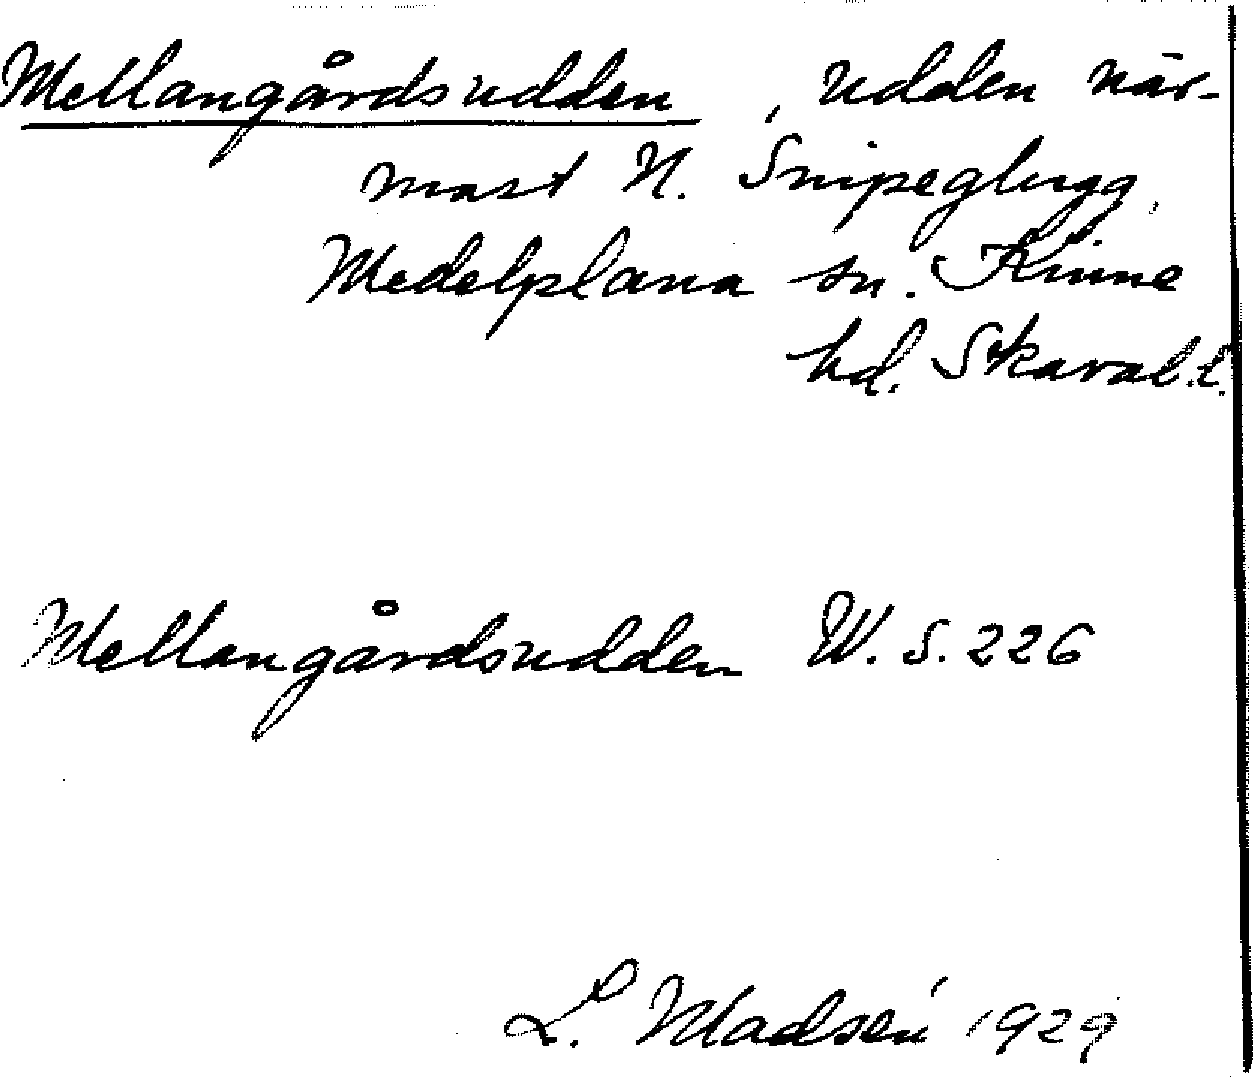 Mellangårdsudden, udden när-
mast N. Snipeglugg,
Medelplana sn. Kinne
hd. Skarab.l.
Mellangårdsudden W. S. 226
L. Madsén 1929